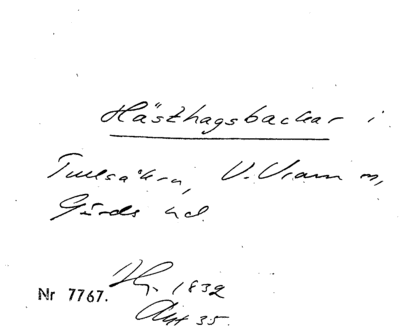 Hästhagsbackar i
V. Vram sn,
Gärds hd.
1832
Nr 7767.
Akt 35.